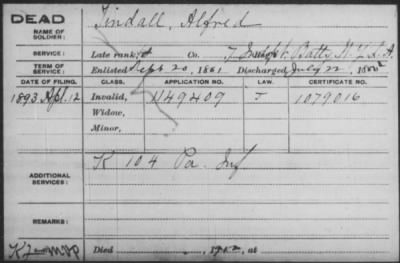 DEAD
NAME OF SOLDIER: Tindall, Alfred
SERVICE: Late rank, Co. 7 Indpt. Batty N.Y. L.A.
TERM OF SERVICE: Enlisted Sept 20, 1861 Discharged July 22, 1865
DATE OF FILING. CLASS. APPLICATION NO. LAW. CERTIFICATE NO.
1893 Apl. 12 Invalid, 1149409 J 1079016
Widow,
Minor,
K 104 Pa. Inf
ADDITIONAL SERVICES:
REMARKS:
Died , at